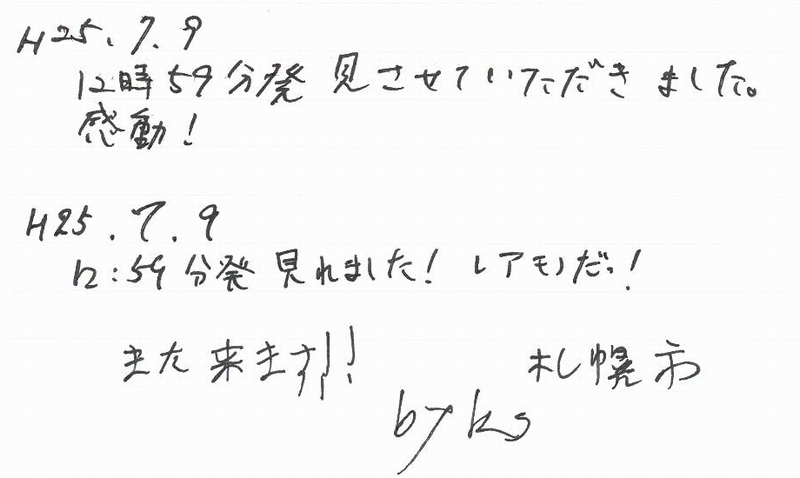 H25.7.9
12時59分発 見させていただきました。
感動!
H25.7.9
12:59分発 見れました! レアモノだっ!
また来ます!!
札幌市
by ks